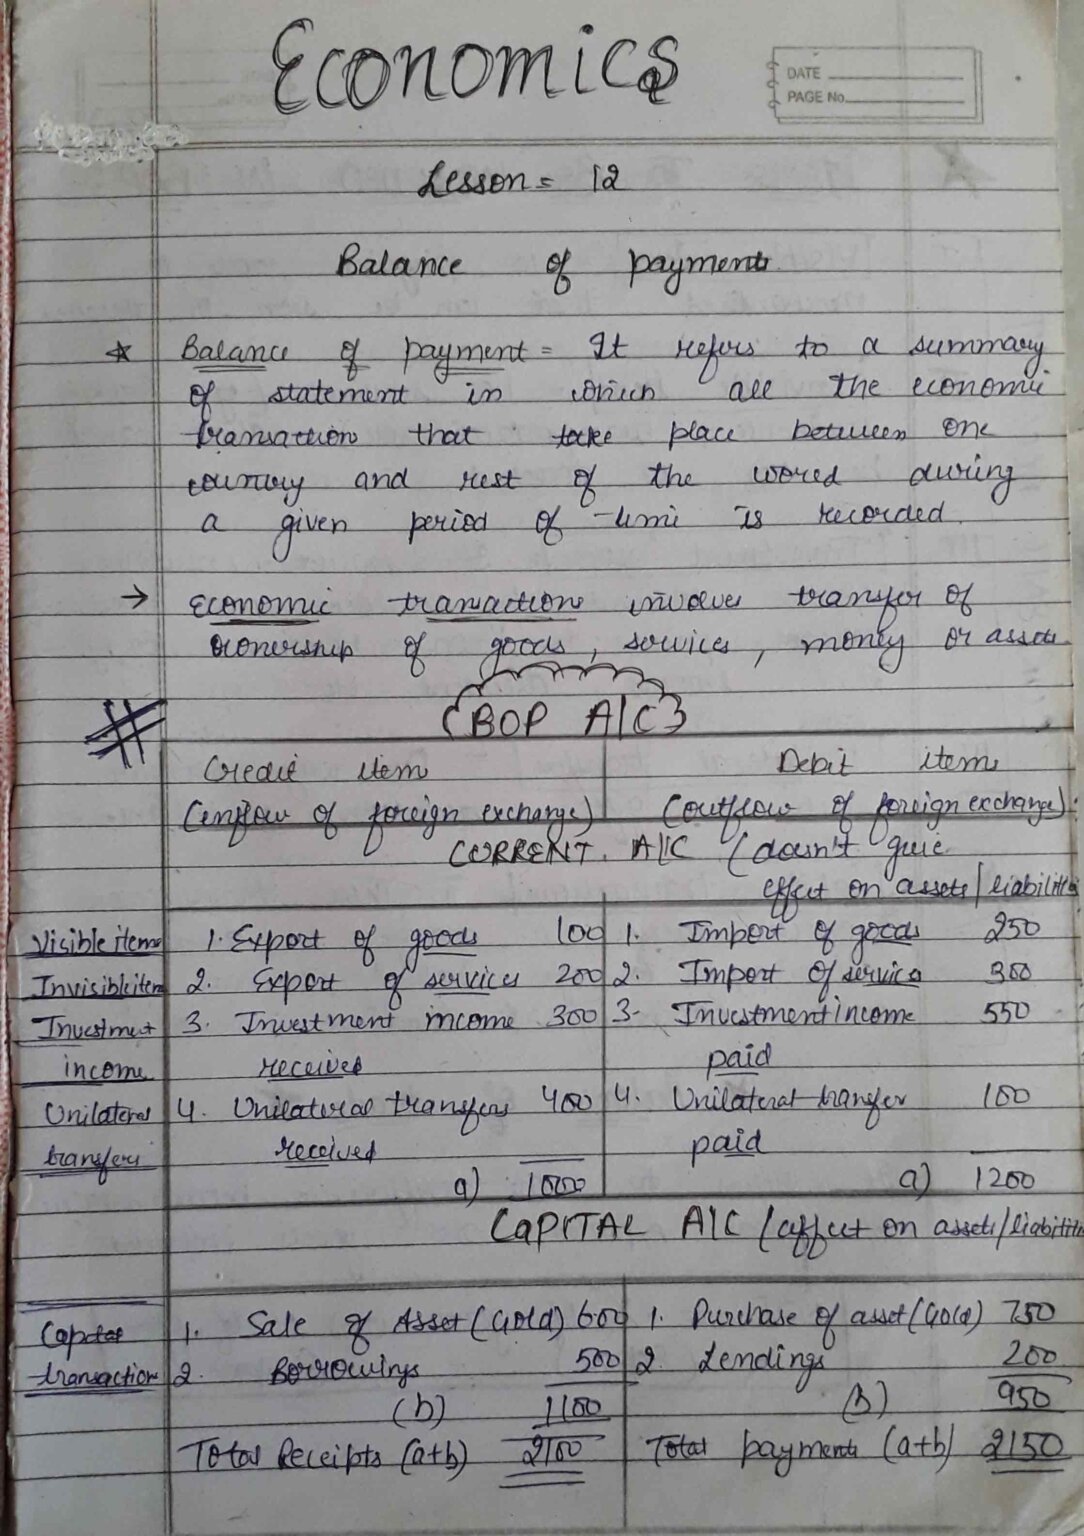 Economics
DATE
PAGE No.
Lesson = 12
Balance of payments
* Balance of payment = It refers to a summary
of statement in which all the economic
transaction that take place between one
country and rest of the world during
a given period of time is recorded.
→ Economic transactions involves transfer of
ownership of goods, services, money or assets
# (BOP A/C)
Credit item Debit items
(inflow of foreign exchange) (outflow of foreign exchange)
CURRENT. A/C (doesn't give
effect on assets/liabilities
Visible items 1. Export of goods 100 1. Import of goods 250
Invisible items 2. Export of services 200 2. Import of services 300
Investment 3. Investment income 300 3. Investment income 550
income received paid
Unilateral 4. Unilateral transfers 400 4. Unilateral transfer 100
transfers received paid
a) 1000 a) 1200
CAPITAL A/C (affect on assets/liabilities
Capital 1. Sale of Asset (Gold) 600 1. Purchase of asset (Gold) 750
transaction 2. Borrowings 500 2. Lendings 200
(b) 1100 (b) 950
Total Receipts (a+b) 2100 Total payments (a+b) 2150